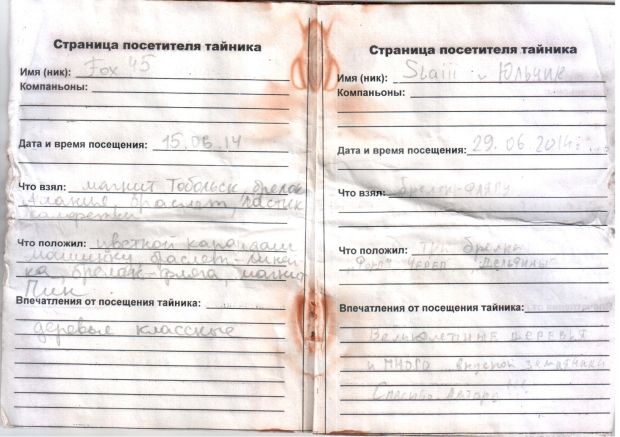 Страница посетителя тайника
Имя (ник): Fox 45
Компаньоны:
Дата и время посещения: 15.06.14
Что взял: магнит Тобольск, брелок
браслет, ластик
конфетки
Что положил: цветной карандаш
машинку, браслет-линей
ка, брелок-фляга, магнит
Пин
Впечатления от посещения тайника:
деревья классные
Страница посетителя тайника
Имя (ник): Slaiii и Юльчик
Компаньоны:
Дата и время посещения: 29.06.2014г
Что взял: брелок-флягу
Что положил: три брелка
череп
Впечатления от посещения тайника:
Великолепные деревья
и много вкусной земляники
Спасибо